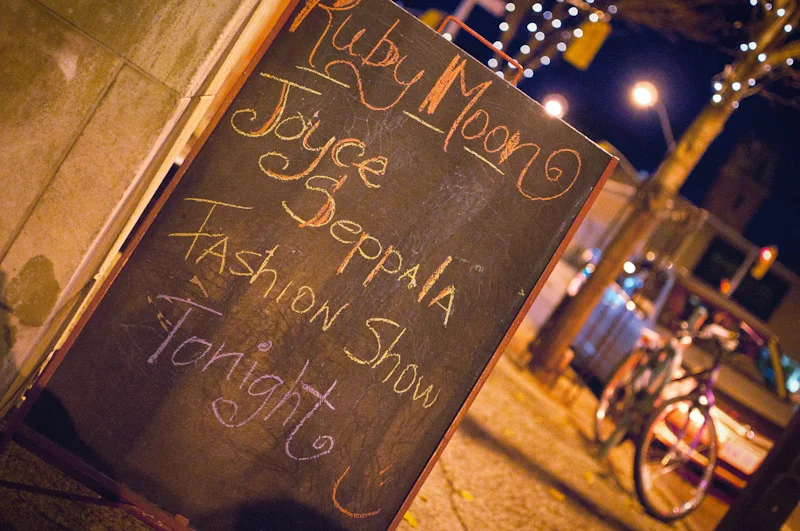 Ruby Moon
Joyce
Seppala
Fashion Show
Tonight